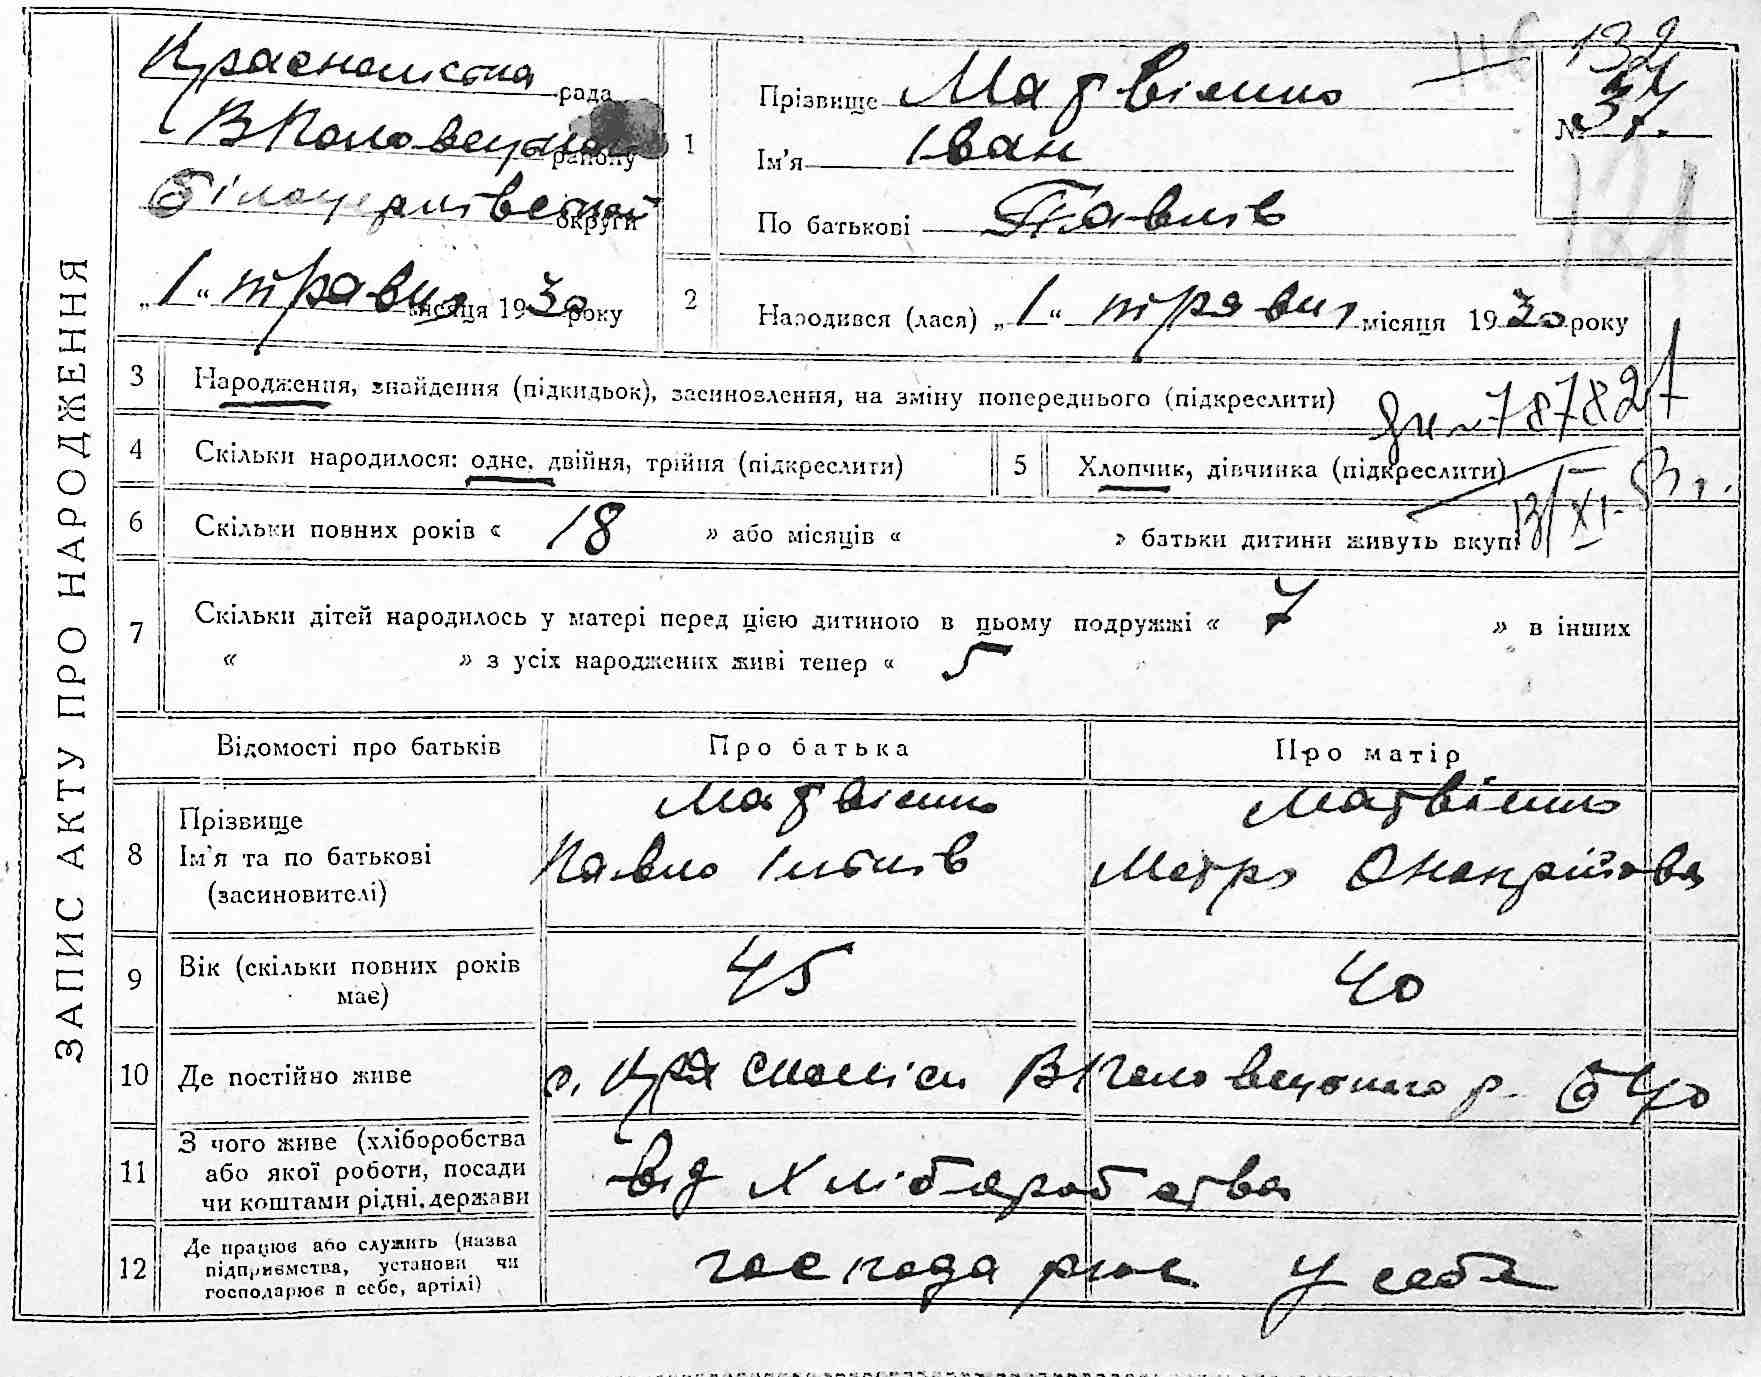 ЗАПИС АКТУ ПРО НАРОДЖЕННЯ
Краснолісна рада
В Половецького району
Білоцерківської округи
„1“ травня місяця 1930 року
1
Прізвище Матвієнко
Ім'я Іван
По батькові Павлів
132
№ 37.
121
2
Народився (лася) „1“ травня місяця 1930 року
3 Народження, знайдення (підкидьок), засиновлення, на зміну попереднього (підкреслити)
787821
4 Скільки народилося: одне, двійня, трійня (підкреслити)
5 Хлопчик, дівчинка (підкреслити)
6 Скільки повних років « 18 » або місяців « » батьки дитини живуть вкупі
7 Скільки дітей народилось у матері перед цією дитиною в цьому подружжі « 7 » в інших
« » з усіх народжених живі тепер « 5
Відомості про батьків Про батька Про матір
8 Прізвище
Ім'я та по батькові
(засиновителі)
Матвієнко
Павло
Матвієнко
9 Вік (скільки повних років має)
45 40
10 Де постійно живе
с. Красноліси В Половецького р. БЦо
11 З чого живе (хліборобства
або якої роботи, посади
чи коштами рідні, держави
від хлібаробства
12 Де працює або служить (назва
підприємства, установи чи
господарює в себе, артілі)
господарює у себе